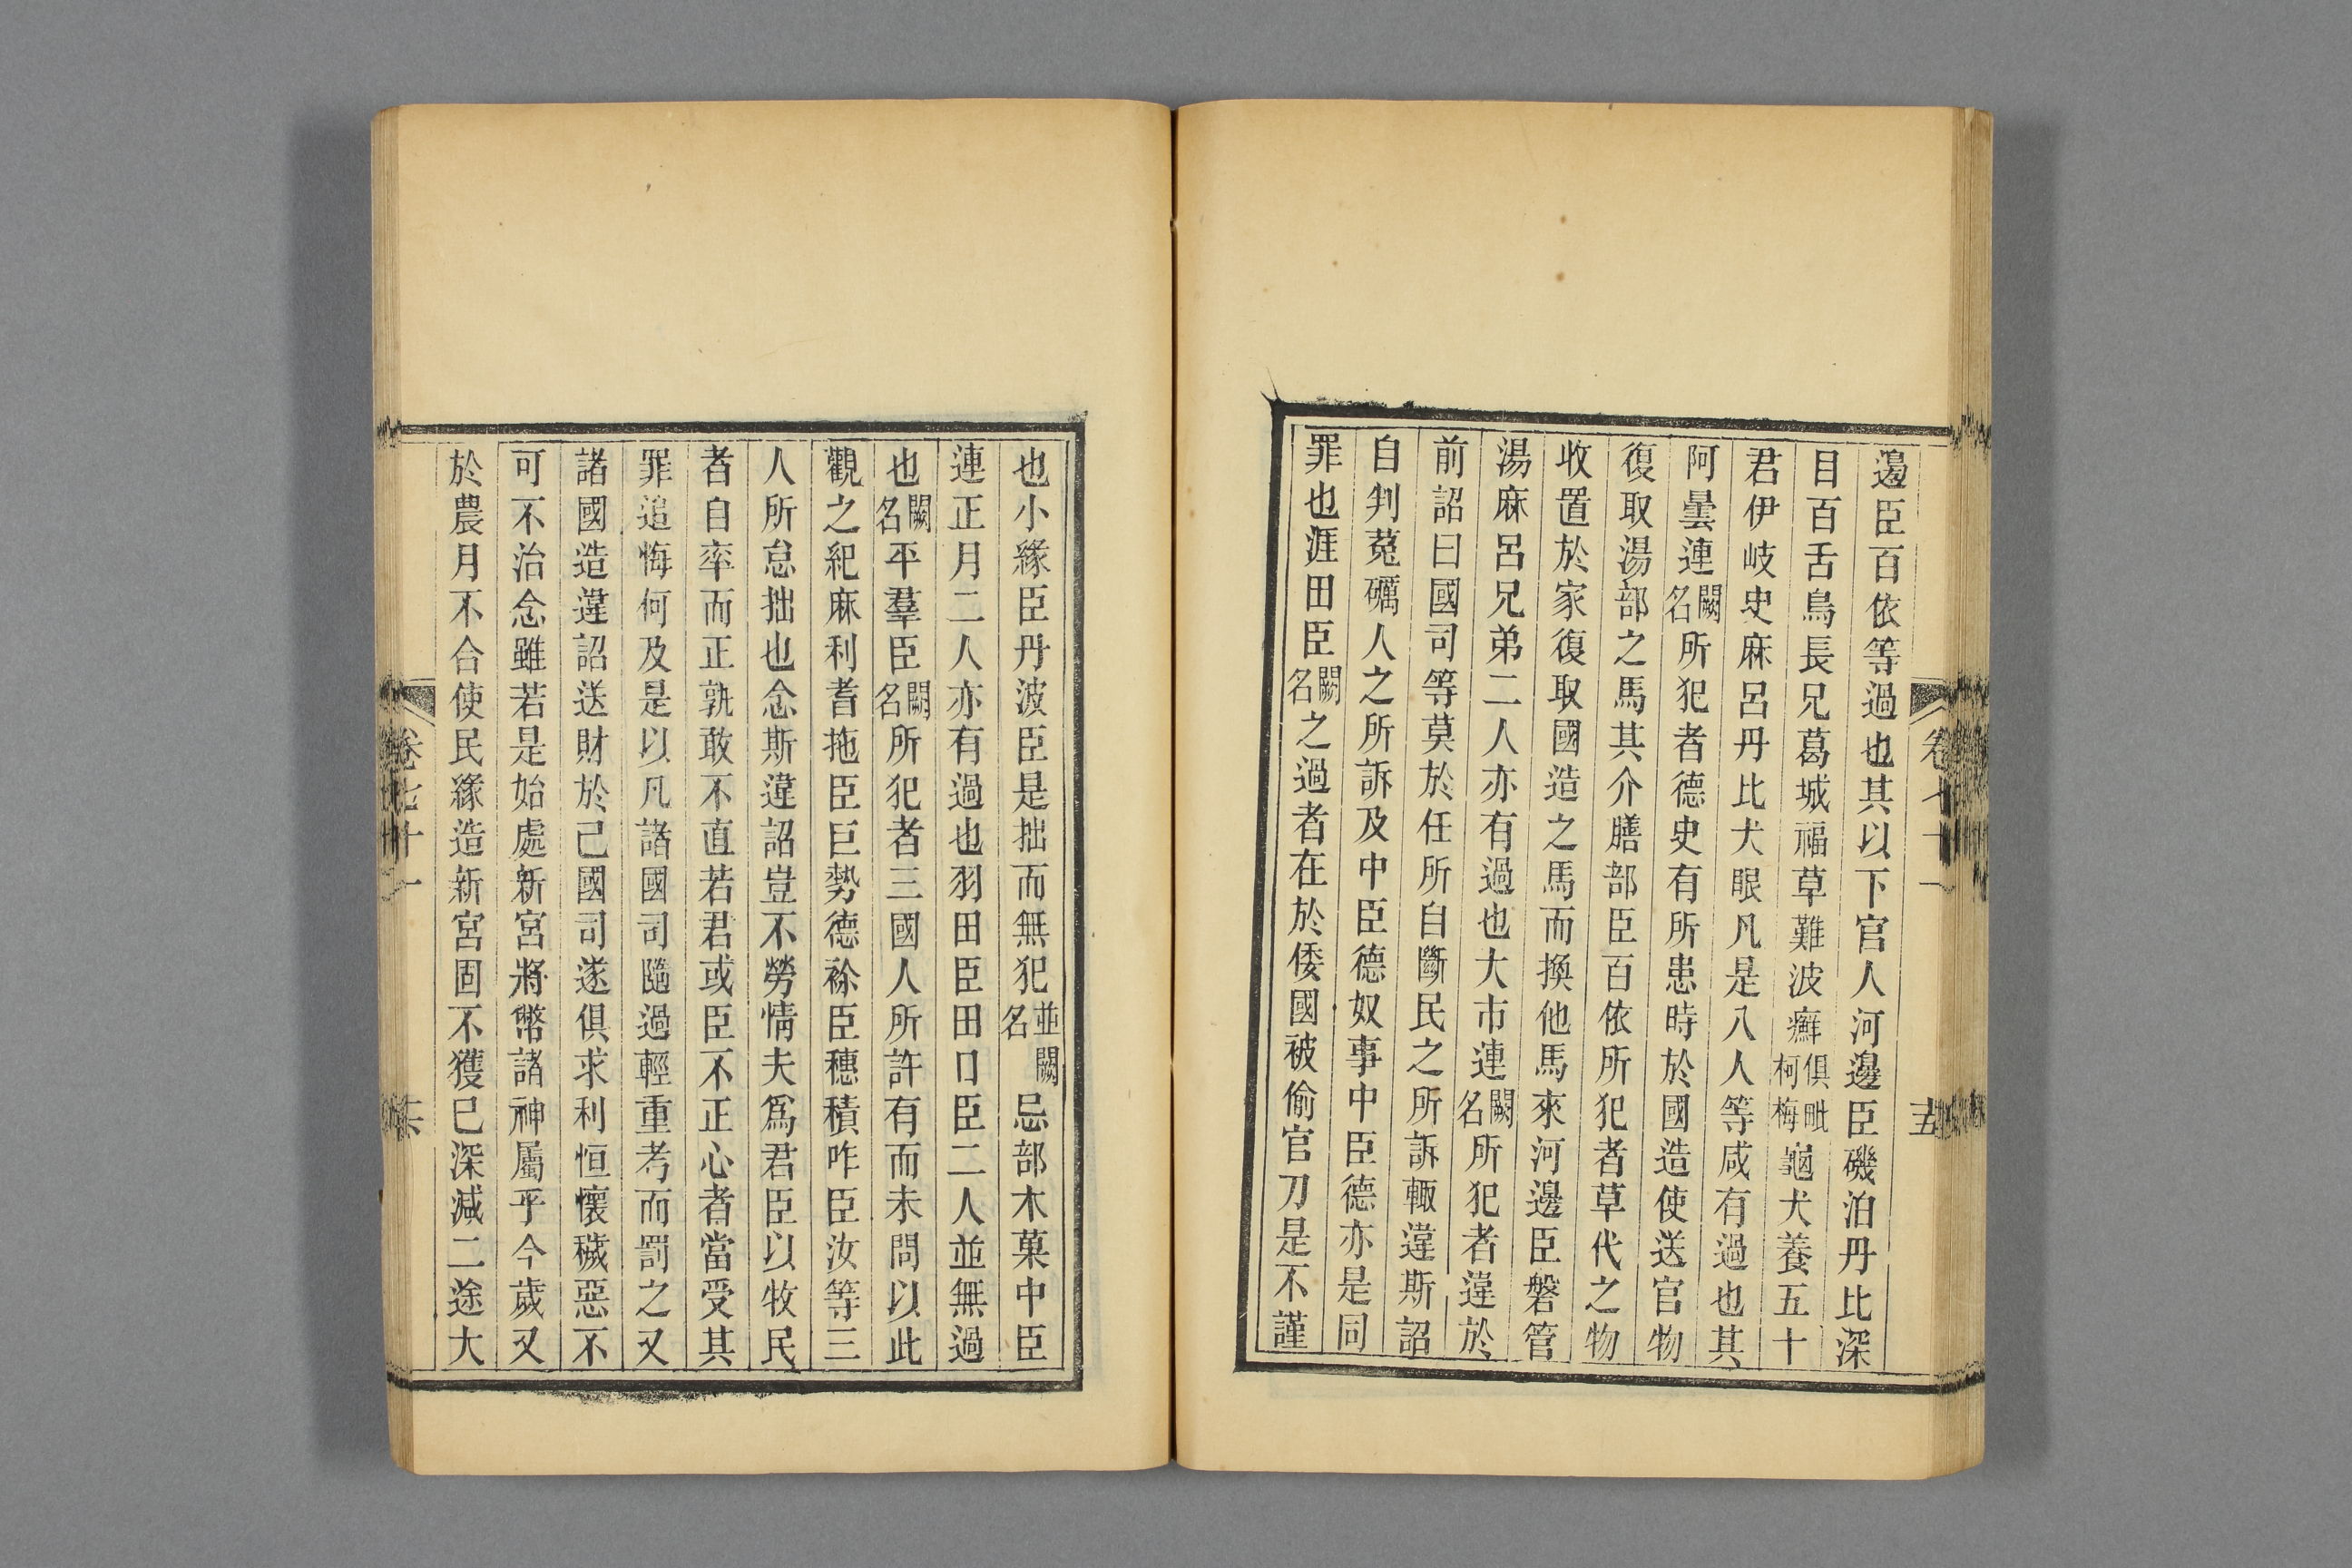 邊臣百依等過也其以下官人河邊臣磯泊丹比深
目百舌鳥長兄葛城福草難波癬俱毗柯梅龜犬養五十
君伊岐史麻呂丹比犬眼凡是八人等咸有過也其
阿曇連闕名所犯者德史有所患時於國造使送官物
復取湯部之馬其介膳部臣百依所犯者草代之物
收置於家復取國造之馬而換他馬來河邊臣磐管
湯麻呂兄弟二人亦有過也大市連闕名所犯者違於
前詔曰國司等莫於任所自斷民之所訴輙違斯詔
自判菟礪人之所訴及中臣德奴事中臣德亦是同
罪也涯田臣闕名之過者在於倭國被偷官刀是不謹
卷七十一
五
也小緣臣丹波臣是拙而無犯並闕名忌部木菓中臣
連正月二人亦有過也羽田臣田口臣二人並無過
也闕名平羣臣闕名所犯者三國人所許有而未問以此
觀之紀麻利耆拖臣巨勢德祢臣穗積咋臣汝等三
人所怠拙也念斯違詔豈不勞情夫爲君臣以牧民
者自率而正孰敢不直若君或臣不正心者當受其
罪追悔何及是以凡諸國司隨過輕重考而罰之又
諸國造違詔送財於己國司遂俱求利恒懷穢惡不
可不治念雖若是始處新宮將幣諸神屬乎今歲又
於農月不合使民緣造新宮固不獲已深減二途大
卷七十一